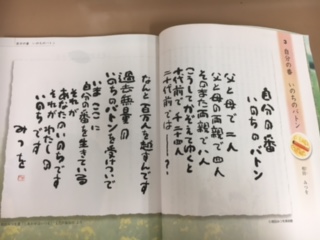 自分の番　いのちのバトン
自分の番
いのちのバトン
父と母で二人
父と母の両親で四人
そのまた両親で八人
こうしてかぞえてゆくと
十代前で千二十四人
二十代前では――？
なんと百万人を越すんです
過去無量の
いのちのバトンを受けついで
いまここに
自分の番を生きている
それが
あなたのいのちです
それがわたしの
いのちです
みつを